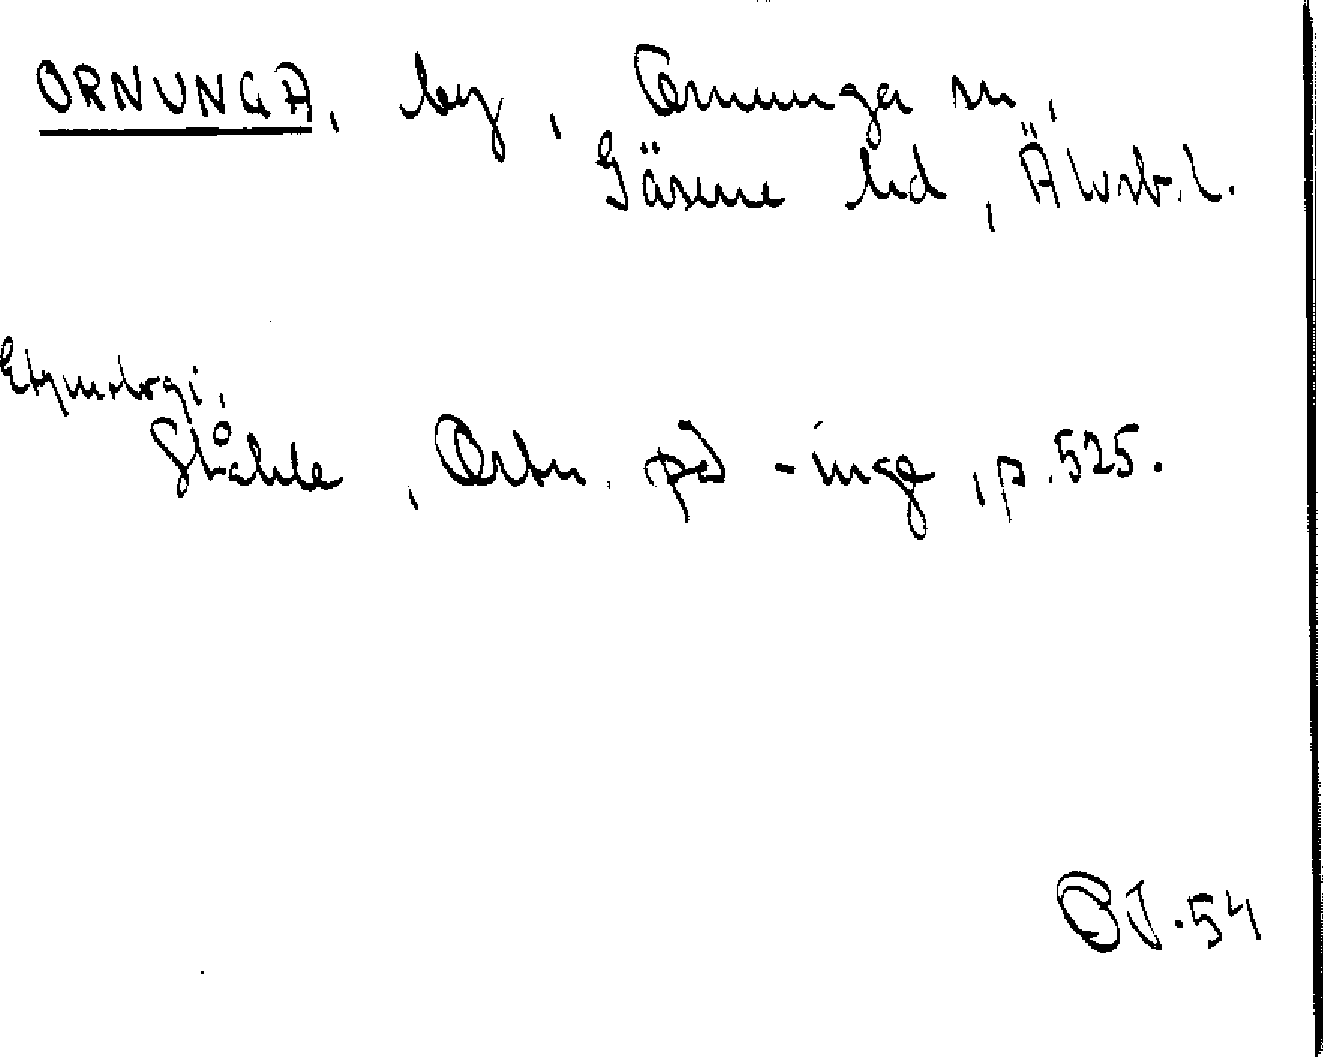 ORNUNGA, by, Ornunga sn,
Gäsene hd, Älvsb.l.
Etymologi:
Ståhle, Ortn. på -inge, p. 525.
OJ.54